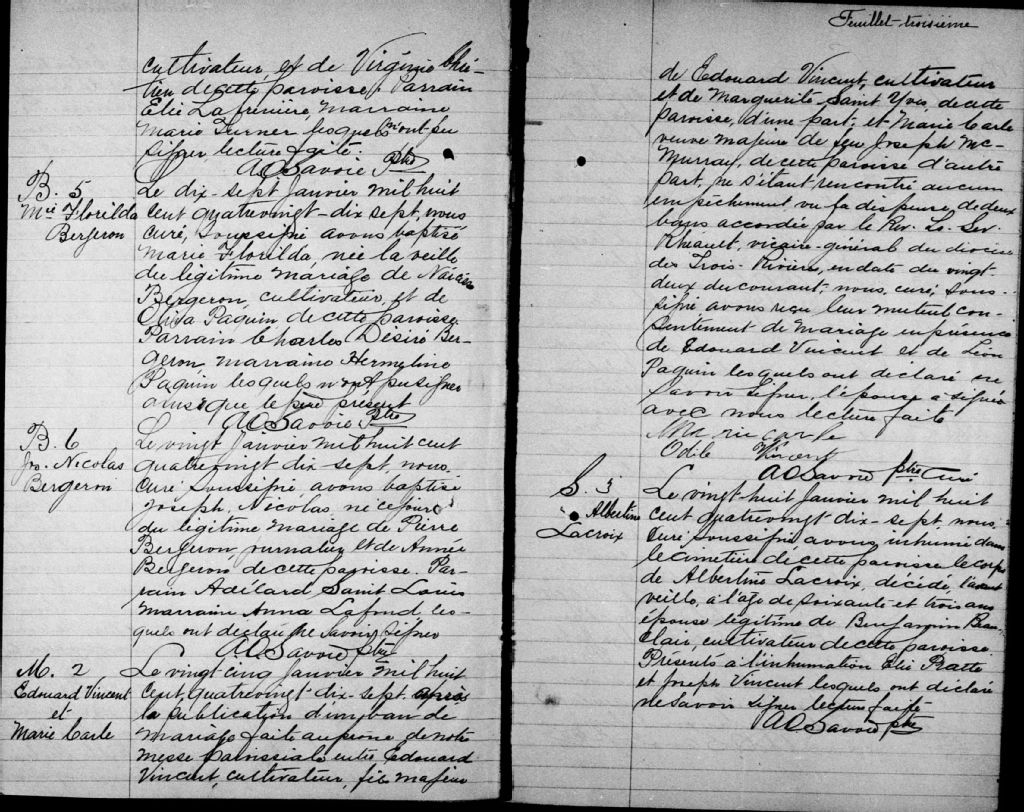 cultivateur, et de Virginie Chré-
tien de cette paroisse. Parrain
Elie Lafrenière Marraine
Marie Turner lesquels n'ont pu
signer, lecture faite.
A O Savoie Ptre
B. 5
Mie Florilda
Bergeron
Le dix-sept Janvier mil huit
cent quatrevingt-dix sept, nous
curé, soussigné avons baptisé
Marie Florilda, née la veille
du légitime mariage de
Bergeron, cultivateur, et de
Eliza Paquin de cette paroisse
Parrain Charles Désiré Ber-
geron, marraine Hermeline
Paquin lesquels n'ont pu signer
ainsi que le père présent
A O Savoie Ptre
B. 6
Jos. Nicolas
Bergeron
Le vingt Janvier mil huit cent
quatrevingt dix sept, nous
curé soussigné avons baptisé
Joseph, Nicolas, né ce jour
du légitime mariage de Pierre
Bergeron, journalier et de Année
Bergeron de cette paroisse. Par-
rain Adélard Saint Louis
Marraine Anna Lafond les-
quels ont déclaré ne savoir signer
A O Savoie Ptre
M. 2
Edouard Vincent
et
Marie Carle
Le vingt cinq Janvier mil huit
cent, quatrevingt-dix-sept après
la publication d'un ban de
mariage faite au prône de notre
messe paroissiale entre Edouard
Vincent, cultivateur, fils majeur
Feuillet troisième
de Edouard Vincent, cultivateur
et de Marguerite Saint Yves, de cette
paroisse, d'une part, et Marie Carle
veuve majeure de feu Joseph Mc-
Murray, de cette paroisse d'autre
part, ne s'étant rencontré aucun
empêchement vu la dispense, de deux
bans accordée par le Rev. Ls. Sev.
Rheault, vicaire-général du diocèse
des Trois-Rivière, en date du vingt
deux du courant, nous, curé, sous-
signé avons reçu leur mutuel con-
sentement de mariage en présence
de Edouard Vincent et de Léon
Paquin lesquels ont déclaré ne
savoir signer, l'épouse a signée
avec nous lecture faite
Marie carle
Odile Vincent
A O Savoie Ptre Curé
S. 3
Albertine
Lacroix
Le vingt-huit Janvier mil huit
cent quatrevingt dix-sept, nous,
curé soussigné avons inhumé dans
le cimetière de cette paroisse le corps
de Albertine Lacroix, décédé, l'avant
veille, à l'age de soixante et trois ans
épouse légitime de Benjamin Beau-
clair, cultivateur de cette paroisse.
Présents à l'inhumation Elie Pratte
et Joseph Vincent lesquels ont déclaré
ne savoir signer lecture faite
A O Savoie Ptre